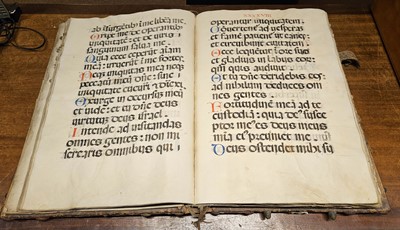 ab insurgētibꝰ ī me libera me.
Eripe me de operantibus
iniquitatē: et de viris
sanguinum salua me.
Quia ecce ceperūt aīam
meam: irruerūt ī me fortes.
Neqꝫ iniquitas mea neqꝫ
peccatū meū dñe: sine
iniquitate cucurri et direxi
Exurge in occursū meū
et uide: et tu dñe deus
uirtutuꝫ deus israel.
Intende ad uisitandas
omnes gentes: non mi
serearis omnibus qui
operantur iniquitatem.
Cōuertent̄ ad uesperā
et famē patient̄ ut canes:
et circuibunt ciuitatem.
Ecce loquent̄ ī ore suo
et gladius in labijs eoꝝ:
qm̄ quis audiuit.
Et tu dñe deridebis eos:
ad nihilum deduces om
nes gentes.
Fortitudinē meā ad te
custodiā: quia deꝰ susce
ptor meꝰ es: deus meus
mīa eiꝰ preueniet me.
Deus ostendet mihi su